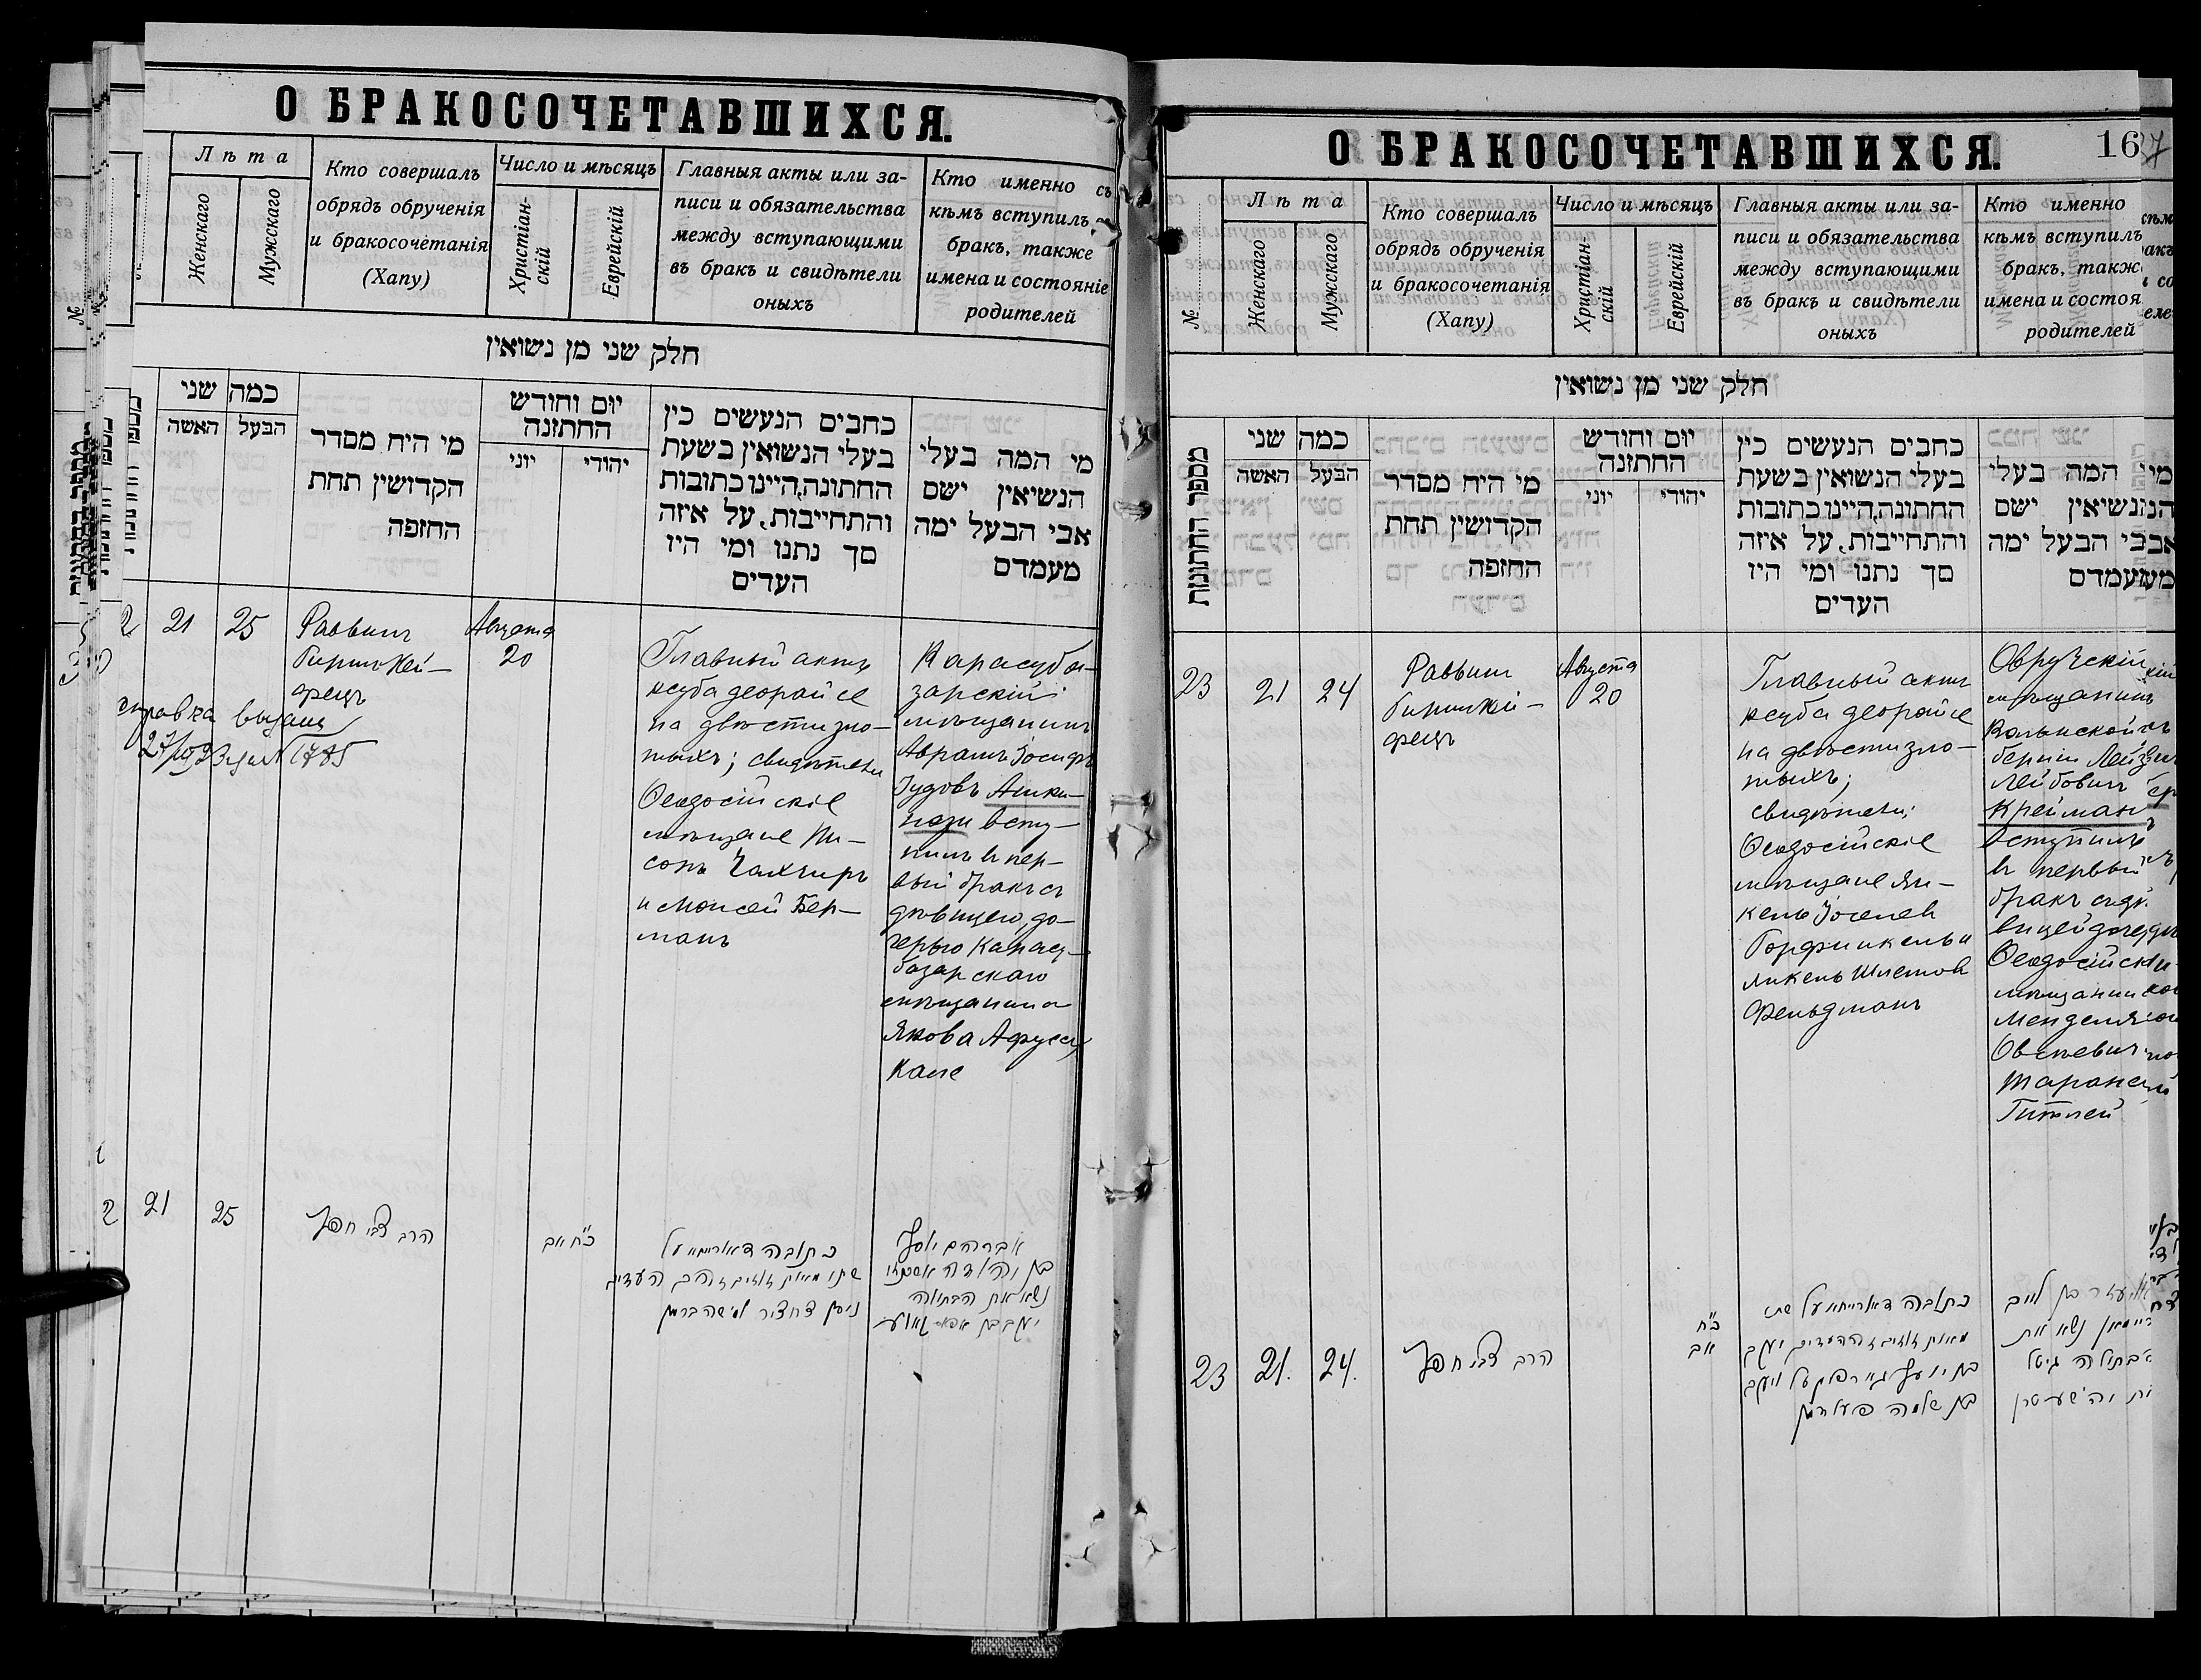 О БРАКОСОЧЕТАВШИХСЯ.
Лѣта
Женскаго
Мужскаго
Кто совершалъ
обрядъ обрученія
и бракосочетанія
(Хапу)
Число и мѣсяцъ
Христіан-
скій
Еврейскій
Главныя акты или за-
писи и обязательства
между вступающими
въ бракъ и свидѣтели
оныхъ
Кто именно съ
кѣмъ вступилъ
бракъ, также
имена и состояніе
родителей
חלק שני מן נשואין
כמה שני
האשה
הבעל
מי היח מסדר
הקדושין תחת
החופה
יום וחודש
החתונה
יוני
יהודי
כחבים הנעשים כין
בעלי הנשואין בשעת
החתונה,היינו כתובות
והתחייבות, על איזה
סך נתנו ומי היו
העדים
מי המה בעלי
הנשיאין ישם
אבי הבעל ימה
מעמדם
2
21
25
Раввинъ
Гиршъ Хей-
фецъ
Августа
20
Главный актъ
ксуба деорайсе
на двѣсти зло-
тыхъ; свидѣтели
Ѳеодосійскіе
мѣщане Ни-
сонъ Чахчиръ
и Моисей Бер-
манъ
Карасуба-
зарскій
мѣщанинъ
Аврамъ Іосифъ
Іудовъ Ашки-
нази всту-
пилъ въ пер-
вый бракъ съ
дѣвицею, до-
черью Карасу-
базарскаго
мѣщанина
Якова
справка выдана
2
21
25
הרב צבי חפץ
כ"ח אב
כתובה דאורייתא על
שתי מאות זוזים זהב העדים
ניסן
אברהם יוסף
בן יהודה אשכנזי
נשא את הבתולה
יעקב בן
О БРАКОСОЧЕТАВШИХСЯ.
167
№
Лѣта
Женскаго
Мужскаго
Кто совершалъ
обрядъ обрученія
и бракосочетанія
(Хапу)
Число и мѣсяцъ
Христіан-
скій
Еврейскій
Главныя акты или за-
писи и обязательства
между вступающими
въ бракъ и свидѣтели
оныхъ
Кто именно
кѣмъ вступилъ
бракъ, также
имена и состоя
родителей
חלק שני מן נשואין
מספר החתונות
כמה שני
האשה
הבעל
מי היח מסדר
הקדושין תחת
החופה
יום וחודש
החתונה
יוני
יהודי
כחבים הנעשים כין
בעלי הנשואין בשעת
החתונה,היינו כתובות
והתחייבות, על איזה
סך נתנו ומי היו
העדים
מי המה בעלי
הנשיאין ישם
אבי הבעל ימה
מעמדם
23
21
24
Раввинъ
Гиршъ Хей-
фецъ
Августа
20
Главный актъ
ксуба деорайсе
на двѣсти зло-
тыхъ;
свидѣтели:
Ѳеодосійскіе
мѣщане Ян-
кель Іоселев
Горфинкель и
Янкель Шлемов
Фельдманъ
Овручскій
мѣщанинъ
Волынской
берніи Лейзеръ
Лейбовичъ
Крейманъ
вступилъ
въ первый
бракъ съ дѣ-
вицей дочерью
Ѳеодосійск
мѣщанин
Менделя
Овсѣевич
Таранск
Гитлей
23
21.
24.
הרב צבי חפץ
כ"ח
אב
כתובה דאורייתא על שתי
מאות זוזים זהב העדים יעקב
בן יוסף גורפינקעל ויעקב
בן שלמה פעלדמן
אליעזר בן לייב
קריימאן נשא את
הבתולה גיטל